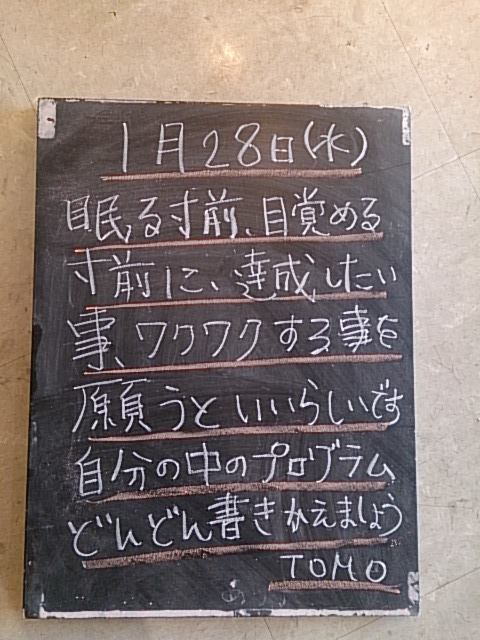 1月28日(水)
眠る寸前、目覚める
寸前に、達成したい
事、ワクワクする事を
願うといいらしいです
自分の中のプログラム
どんどん書きかえましょう
TOMO